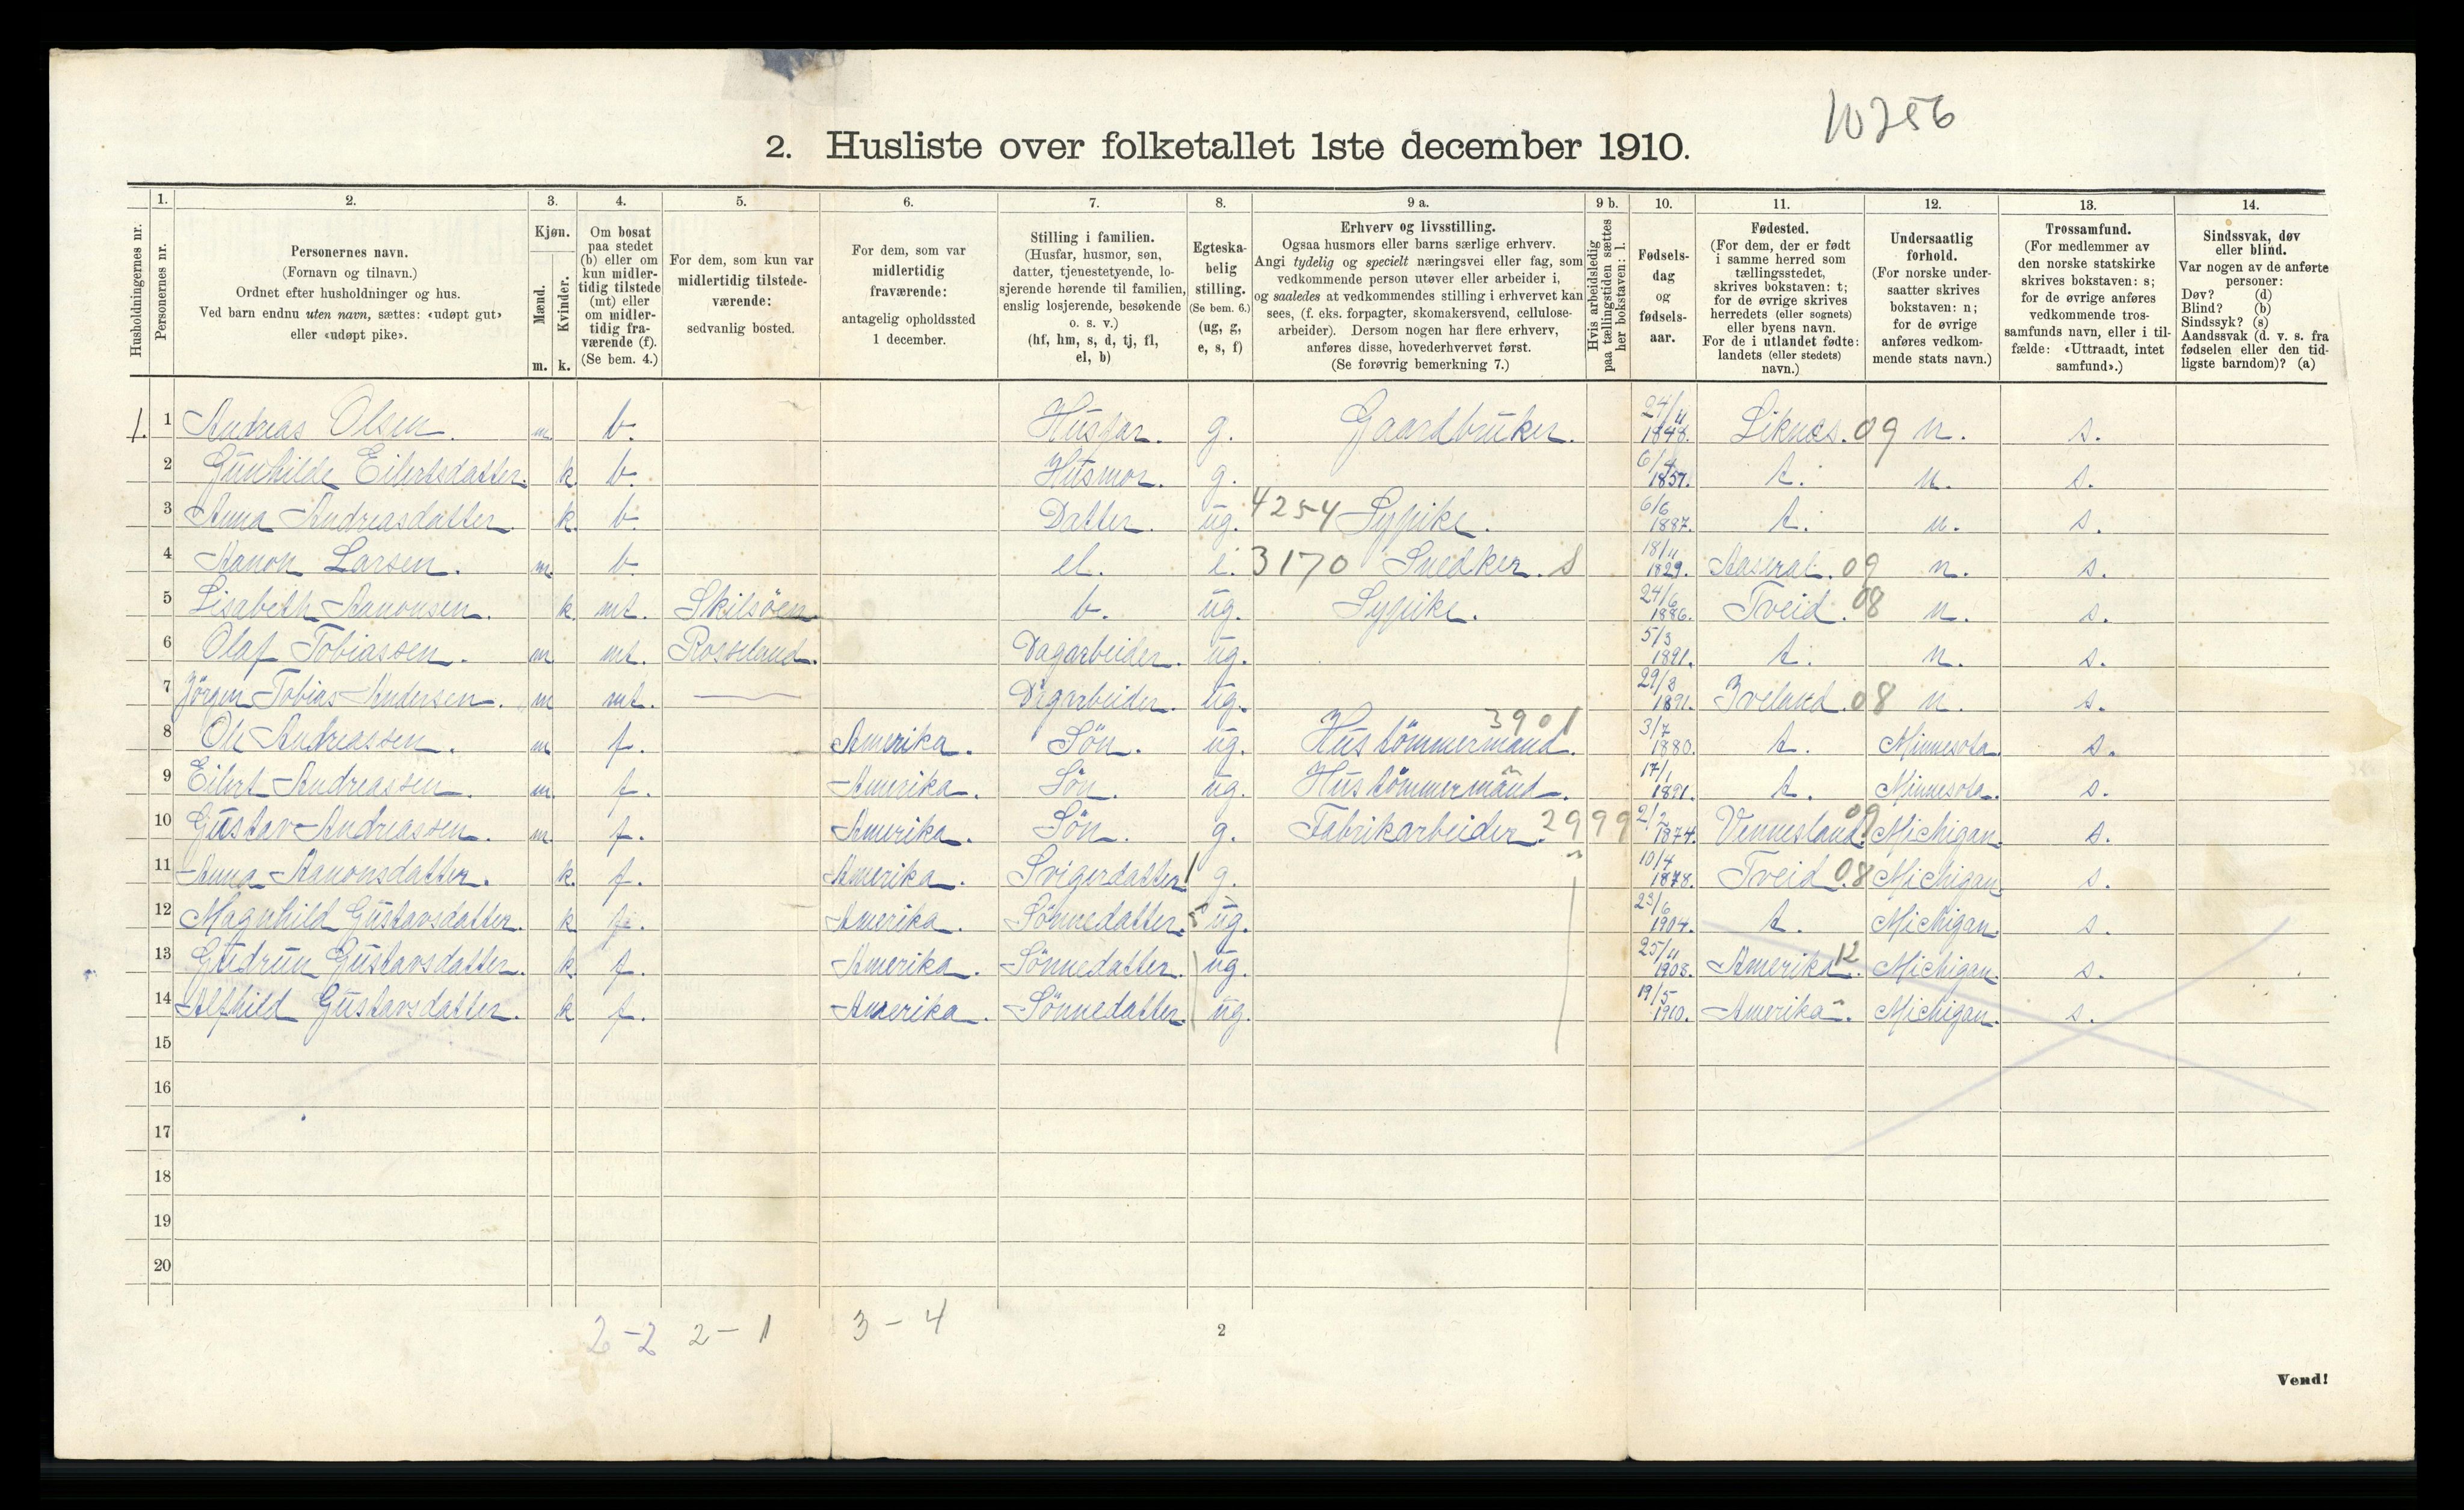 10256
2. Husliste over folketallet 1ste december 1910.
1. 2. 3. 4. 5. 6. 7. 8. 9 a. 9 b. 10. 11. 12. 13. 14.
Husholdningernes nr.
Personernes nr.
Personernes navn.
(Fornavn og tilnavn.)
Ordnet efter husholdninger og hus.
Ved barn endnu uten navn, sættes: «udøpt gut»
eller «udøpt pike».
Kjøn.
Mænd.
Kvinder.
m. k.
Om bosat
paa stedet
(b) eller om
kun midler-
tidig tilstede
(mt) eller
om midler-
tidig fra-
værende (f).
(Se bem. 4.)
For dem, som kun var
midlertidig tilstede-
værende:
sedvanlig bosted.
For dem, som var
midlertidig
fraværende:
antagelig opholdssted
1 december.
Stilling i familien.
(Husfar, husmor, søn,
datter, tjenestetyende, lo-
sjerende hørende til familien,
enslig losjerende, besøkende
o. s. v.)
(hf, hm, s, d, tj, fl,
el, b)
Egteska-
belig
stilling.
(Se bem. 6.)
(ug, g,
e, s, f)
Erhverv og livsstilling.
Ogsaa husmors eller barns særlige erhverv.
Angi tydelig og specielt næringsvei eller fag, som
vedkommende person utøver eller arbeider i,
og saaledes at vedkommendes stilling i erhvervet kan
sees, (f. eks. forpagter, skomakersvend, cellulose-
arbeider). Dersom nogen har flere erhverv,
anføres disse, hovederhvervet først.
(Se forøvrig bemerkning 7.)
Hvis arbeidsledig
paa tællingstiden sættes
her bokstaven: l.
Fødsels-
dag
og
fødsels-
aar.
Fødested.
(For dem, der er født
i samme herred som
tællingsstedet,
skrives bokstaven: t;
for de øvrige skrives
herredets (eller sognets)
eller byens navn.
For de i utlandet fødte:
landets (eller stedets)
navn.)
Undersaatlig
forhold.
(For norske under-
saatter skrives
bokstaven: n;
for de øvrige
anføres vedkom-
mende stats navn.)
Trossamfund.
(For medlemmer av
den norske statskirke
skrives bokstaven: s;
for de øvrige anføres
vedkommende tros-
samfunds navn, eller i til-
fælde: «Uttraadt, intet
samfund».)
Sindssvak, døv
eller blind.
Var nogen av de anførte
personer:
Døv? (d)
Blind? (b)
Sindssyk? (s)
Aandssvak (d. v. s. fra
fødselen eller den tid-
ligste barndom)? (a)
1. 1 Andreas Olsen. m b. Husfar. g. Gaardbruker. 24/11 1848. Liknes. 09 n. s.
2 Gunhilde Eilertsdatter. k. b. Husmor. g. 6/4 1857. t. n. s.
3 Anna Andreasdatter. k. b Datter. ug. 4254 Sypike. 6/6 1887. t. n. s.
4 Aanon Larsen. m. b el. e. 3170 Snedker. s 18/11 1829. Aaseral. 09 n. s.
5 Lisabeth Aanonsen. k. mt. Skilsöen b. ug. Sypike. 24/6 1886. Tveid. 08 n. s.
6 Olaf Tobiassen. m mt. Rosseland. Dagarbeider. ug. 5/3 1891. t. n. s.
7 Jörgen Tobias Andersen. m mt. — Dagarbeider. ug. 29/3 1891. Iveland. 08 n. s.
8 Ole Andreassen. m f. Amerika. Sön. ug. Hustömmermand. 3901 3/7 1880. t. Minnesota. s.
9 Eilert Andreassen. m. f. Amerika. Sön. ug. Hustömmermand. 17/1 1891. t. Minnesota. s.
10 Gustav Andreassen. m. f. Amerika. Sön. g. Fabrikarbeider. 2999 2/2 1874. Vennesland. 09 Michigan. s.
11 Anna Aanonsdatter. k. f. Amerika. Svigerdatter 1 g. 10/4 1878. Tveid. 08 Michigan. s.
12 Magnhild Gustavsdatter. k f. Amerika. Sönnedatter. 5 ug. 23/6 1904. t. Michigan. s.
13 Gudrun Gustavsdatter. k f. Amerika. Sönnedatter. ug. 25/11 1908. Amerika. 12 Michigan. s.
14 Alfhild Gustavsdatter. k f. Amerika. Sönnedatter. ug. 19/5 1910. Amerika. Michigan. s.
15
16
17
18
19
20
2-2 2-1 3-4
2
Vend!